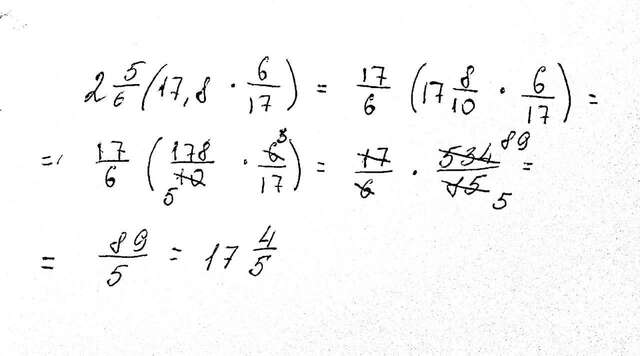 2 5/6 (17,8 · 6/17) = 17/6 (17 8/10 · 6/17) =
= 17/6 (178/10 5 · 6 3/17) = 17/6 · 534 89/85 5 =
= 89/5 = 17 4/5